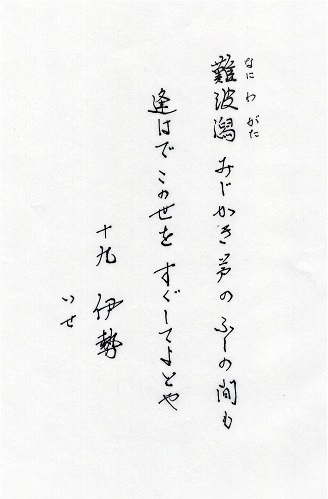 なに わ がた
難波潟 みじかき芦の ふしの間も
逢はでこの世を すぐしてよとや
十九 伊勢
いせ